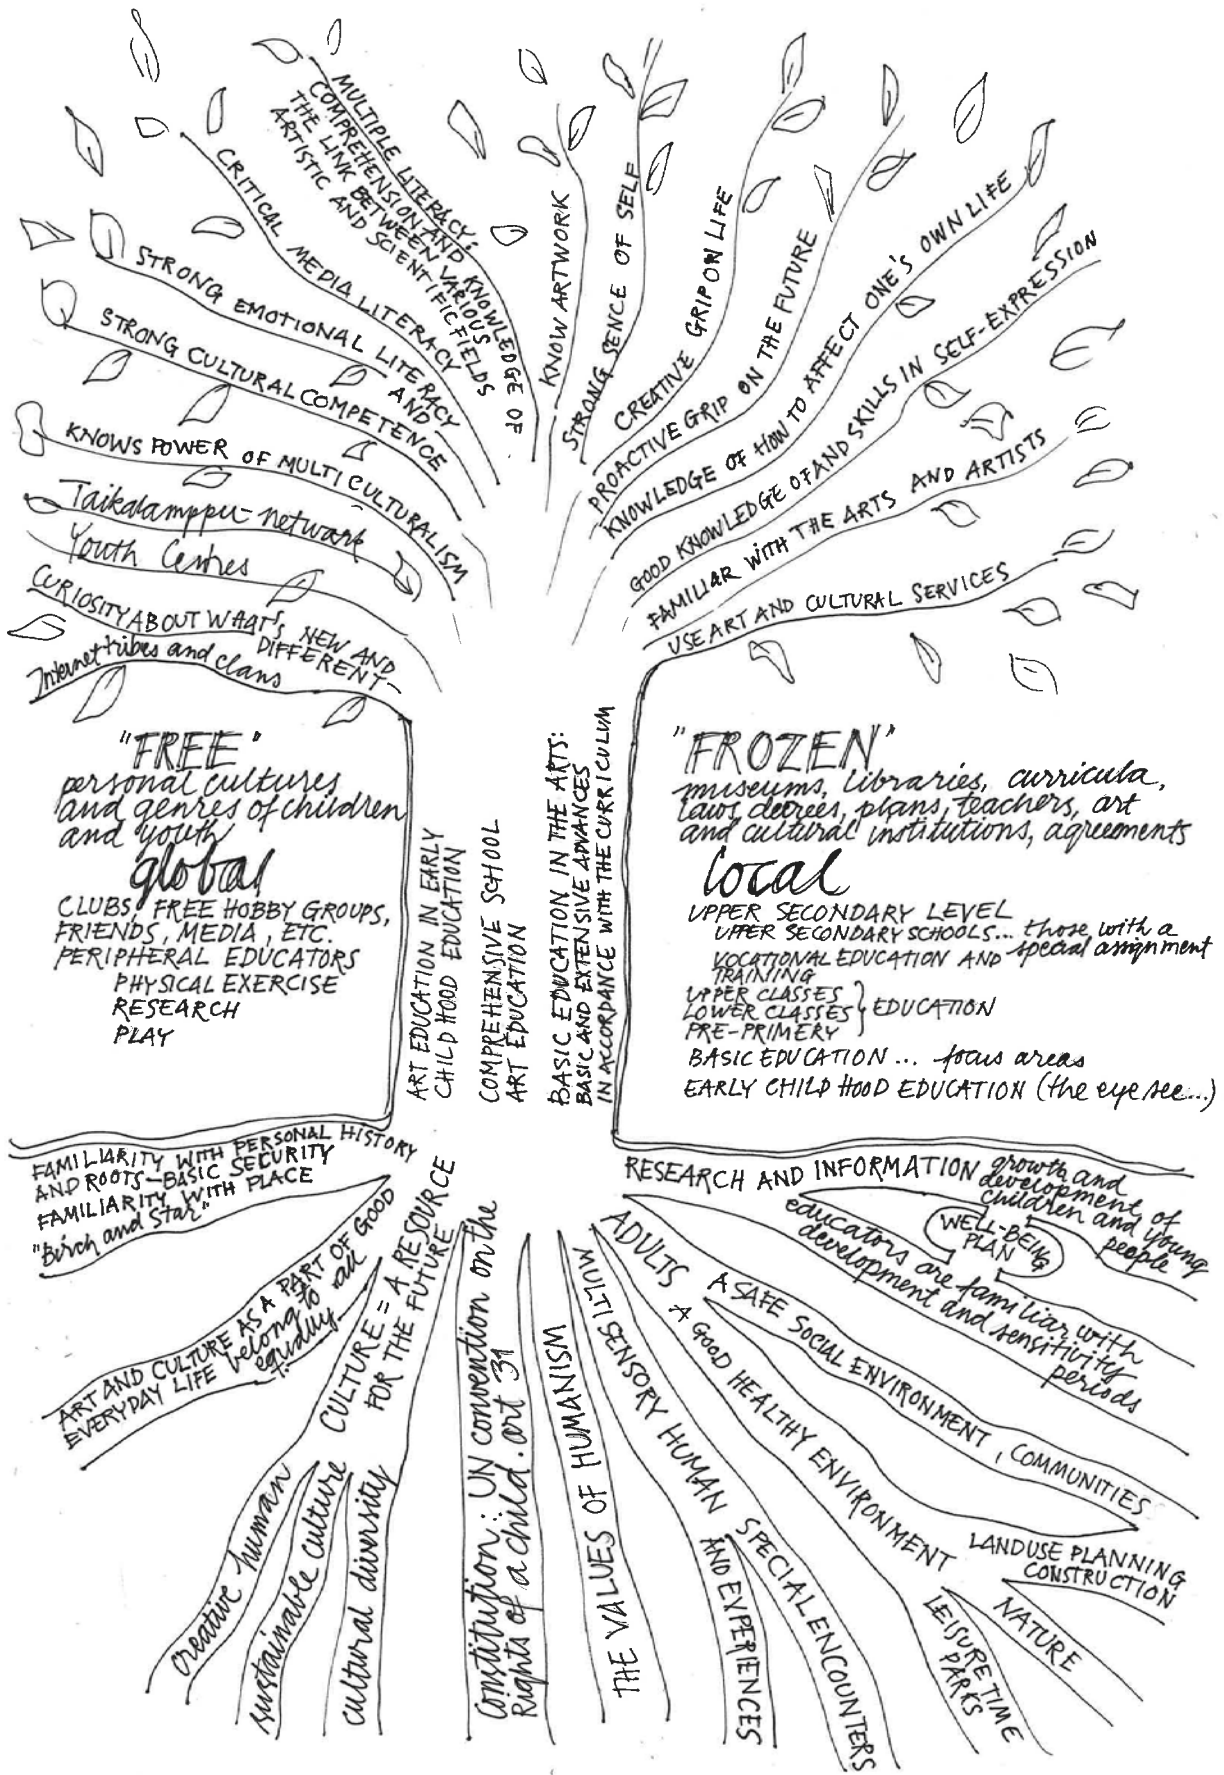 MULTIPLE LITERACY:
COMPREHENSION AND KNOWLEDGE OF
THE LINK BETWEEN VARIOUS
ARTISTIC AND SCIENTIFIC FIELDS
CRITICAL MEDIA LITERACY
STRONG EMOTIONAL LITERACY
AND
STRONG CULTURAL COMPETENCE
KNOWS POWER OF MULTICULTURALISM
Taikalamppu-network
Youth Centres
CURIOSITY ABOUT WHAT'S NEW AND
DIFFERENT-
Internet tribes and clans
KNOW ARTWORK
STRONG SENCE OF SELF
CREATIVE GRIP ON LIFE
PROACTIVE GRIP ON THE FUTURE
KNOWLEDGE OF HOW TO AFFECT ONE'S OWN LIFE
GOOD KNOWLEDGE OF AND SKILLS IN SELF-EXPRESSION
FAMILIAR WITH THE ARTS AND ARTISTS
USE ART AND CULTURAL SERVICES
"FREE"
personal cultures
and genres of children
and youth
global
CLUBS, FREE HOBBY GROUPS,
FRIENDS, MEDIA, ETC.
PERIPHERAL EDUCATORS
PHYSICAL EXERCISE
RESEARCH
PLAY
ART EDUCATION IN EARLY
CHILDHOOD EDUCATION
COMPREHENSIVE SCHOOL
ART EDUCATION
BASIC EDUCATION IN THE ARTS:
BASIC AND EXTENSIVE ADVANCES
IN ACCORDANCE WITH THE CURRICULUM
"FROZEN"
museums, libraries, curricula,
laws, decrees, plans, teachers, art
and cultural institutions, agreements
local
UPPER SECONDARY LEVEL
UPPER SECONDARY SCHOOLS... those with a
special assignment
VOCATIONAL EDUCATION AND
TRAINING
UPPER CLASSES
LOWER CLASSES
PRE-PRIMERY
EDUCATION
BASIC EDUCATION ... focus areas
EARLY CHILDHOOD EDUCATION (the eye see...)
FAMILIARITY WITH PERSONAL HISTORY
AND ROOTS-BASIC SECURITY
FAMILIARITY WITH PLACE
"Birch and Star"
ART AND CULTURE AS A PART OF GOOD
EVERYDAY LIFE belong to all
equally
CULTURE = A RESOURCE
FOR THE FUTURE
creative human
sustainable culture
cultural diversity
Constitution: UN convention on the
Rights of a child. art 31
THE VALUES OF HUMANISM
MULTISENSORY HUMAN
AND EXPERIENCES
SPECIAL ENCOUNTERS
ADULTS
A GOOD HEALTHY ENVIRONMENT
LEISURE TIME
PARKS
NATURE
LANDUSE PLANNING
CONSTRUCTION
A SAFE SOCIAL ENVIRONMENT, COMMUNITIES
RESEARCH AND INFORMATION growth and
development of
children and young
people
WELL-BEING
PLAN
educators are familiar with
development and sensitivity
periods